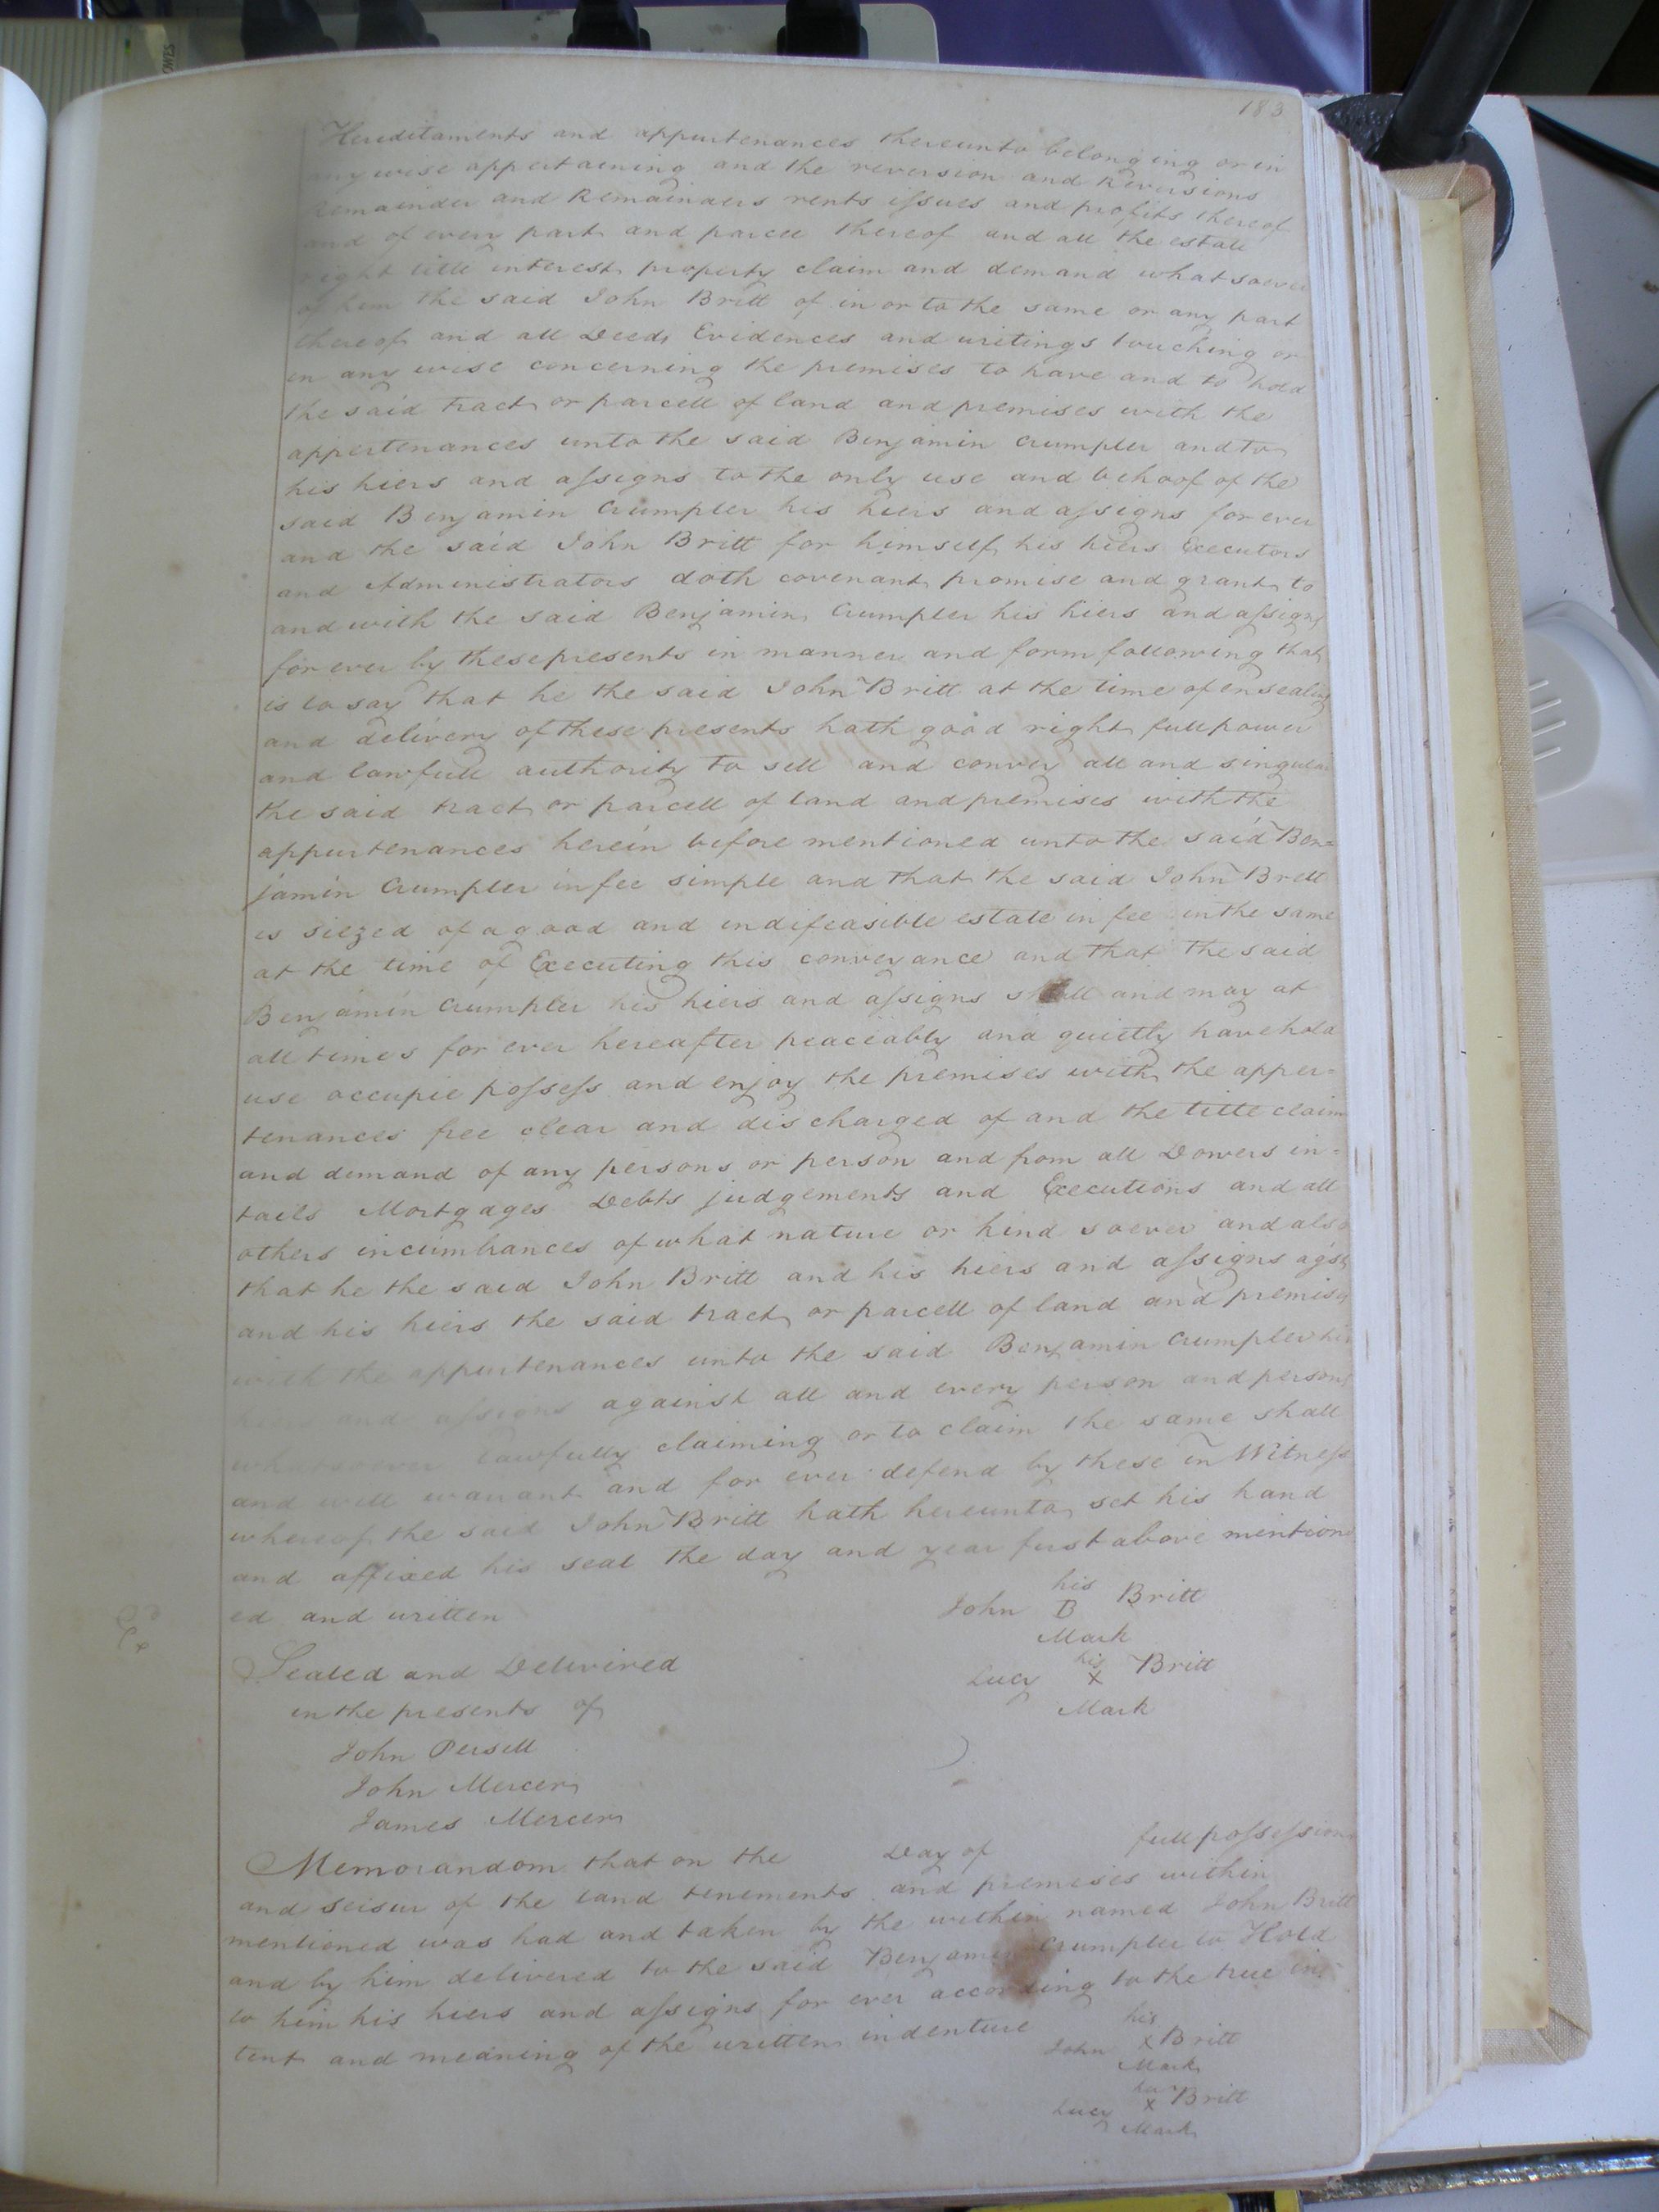 183
Hereditaments and appurtenances thereunto belonging or in
any wise appertaining and the reversion and Reversions
Remainder and Remainders rents issues and profits thereof
and of every part and parcel thereof and all the estate
right title interest property claim and demand whatsoever
of him the said John Britt of in or to the same or any part
thereof and all Deeds Evidences and writings touching or
in any wise concerning the premises to have and to hold
the said tract or parcell of land and premises with the
appertenances unto the said Benjamin Crumpler and to
his hiers and assigns to the only use and behoof of the
said Benjamin Crumpler his hiers and assigns for ever
and the said John Britt for himself his hiers Executors
and Administrators doth covenant promise and grant to
and with the said Benjamin Crumpler his hiers and assigns
for ever by these presents in manner and form following that
is to say that he the said John Britt at the time of ensealing
and delivery of these presents hath good right full power
and lawfull authority to sell and convey all and singular
the said tract or parcell of land and premises with the
appurtenances herein before mentioned unto the said Ben=
jamin Crumpler in fee simple and that the said John Britt
is siezed of a good and indifeasible estate in fee in the same
at the time of Executing this conveyance and that the said
Benjamin Crumpler his hiers and assigns shall and may at
all times for ever hereafter peaceably and quietly have hold
use occupie possess and enjoy the premises with the apper=
tenances free clear and discharged of and the title claim
and demand of any persons or person and from all Dowers in=
tails Mortgages Debts judgements and Executions and all
others incumbrances of what nature or kind soever and also
that he the said John Britt and his hiers and assigns agst
and his hiers the said tract or parcell of land and premises
with the appurtenances unto the said Benjamin Crumpler his
hiers and assigns against all and every person and persons
whatsoever lawfully claiming or to claim the same shall
and will warrant and for ever defend by these in Witness
whereof the said John Britt hath hereunto set his hand
and affixed his seal the day and year first above mention
ed and written
John his B Mark Britt
Lucy his x Mark Britt
Sealed and Delivired
in the presents of
John Persell
John Mercer
James Mercer
Memorandom that on the Day of full possession
and seisur of the land tenements and premises within
mentioned was had and taken by the within named John Britt
and by him delivered to the said Benjamin Crumpler to Hold
to him his hiers and assigns for ever according to the true in=
tent and meaning of the written indenture
John his x Mark Britt
Lucy her x Mark Britt